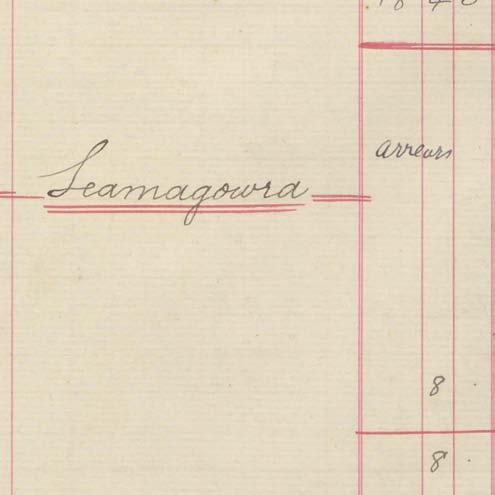 Leamagowra
arrears
8
8